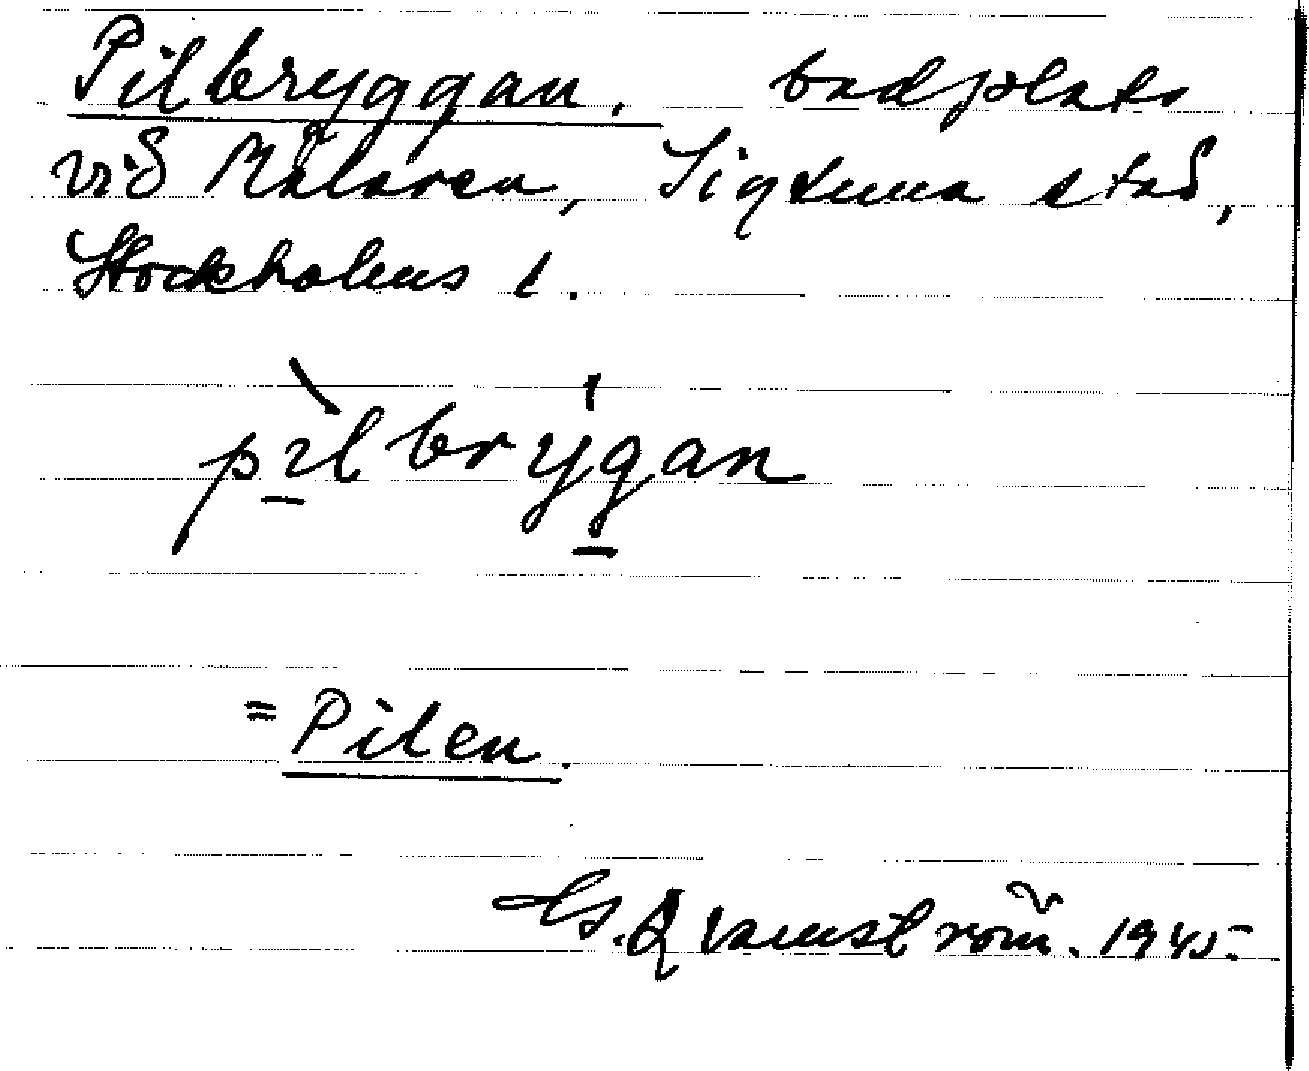 Pilbryggan. badplats
vid Mälaren, Sigtuna stad,
Stockholms l.
pìlbrýgan
= Pilen.
G. Qvarnström. 1945.